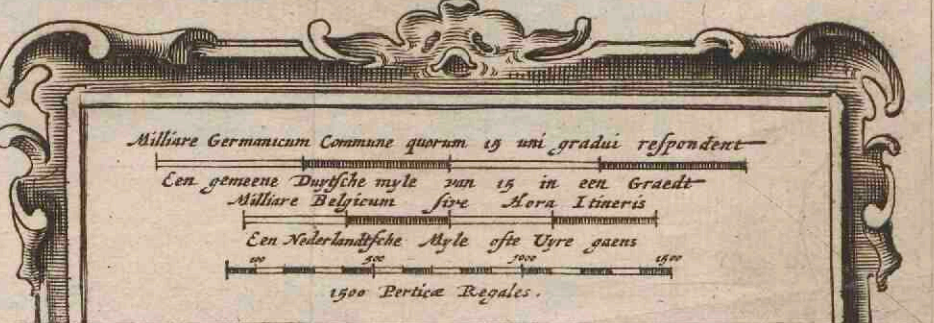 Milliare Germanicum Commune quorum 15 uni gradui respondent
Een gemeene Duytsche myle van 15 in een Graedt
Milliare Belgicum sive Hora Itineris
Een Nederlandtsche Myle ofte Uyre gaens
100 500 1000 1500
1500 Perticæ Regales.